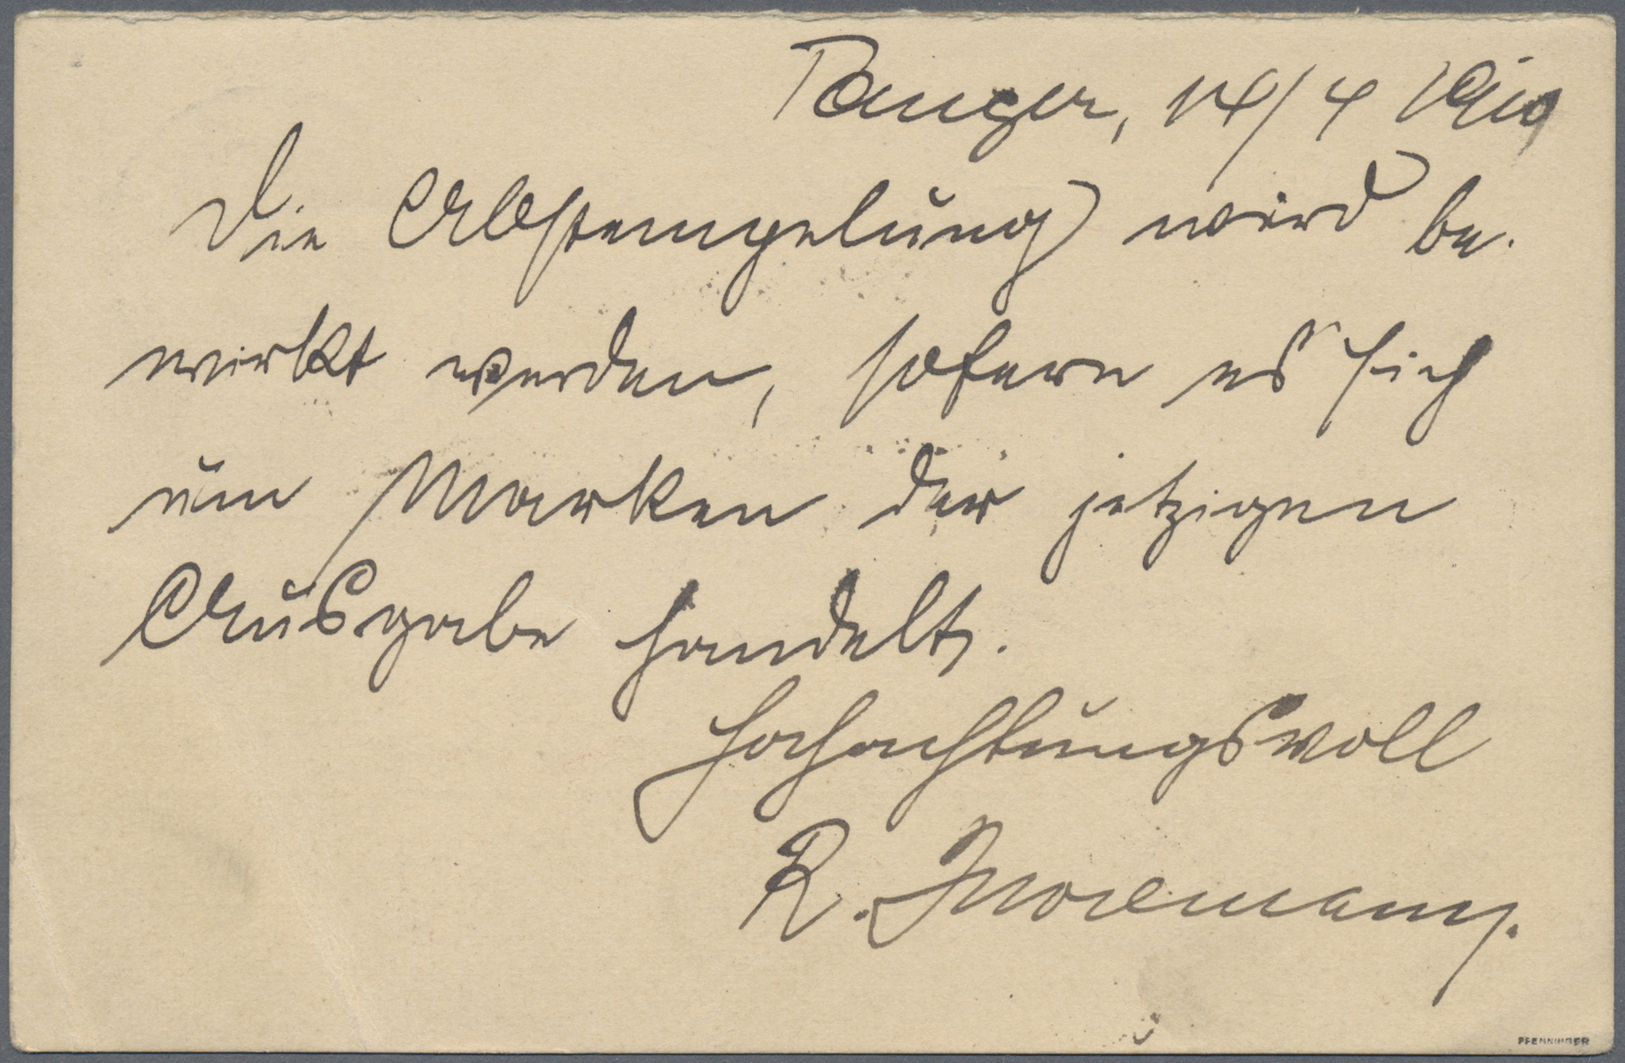 Tanger, 14/4 1910
Die Abstempelung wird be-
wirkt werden, sofern es sich
um Marken der jetzigen
Ausgabe handelt.
Hochachtungsvoll
R.
PFENNINGER